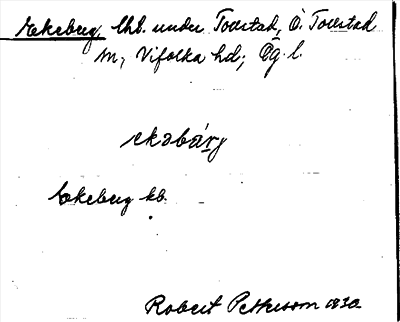 Ekeberg, lhb. under Tolstad, Ö. Tolstad
sn, Vifolka hd; Ög. l.
ekəbärj
Ekeberg kb.
Robert Pettersson 1930